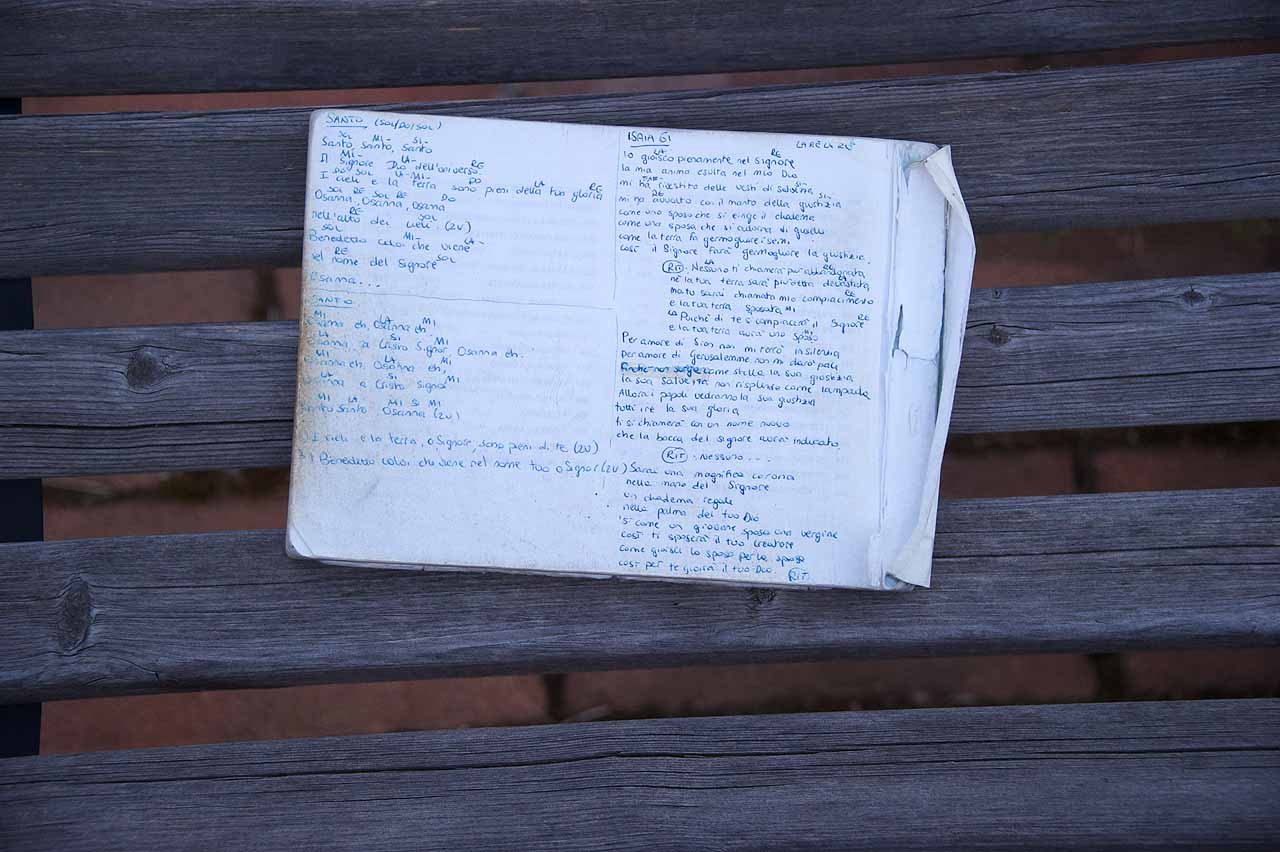 SANTO (SOL/DO/SOL)
SOL MI- SI-
Santo, santo, santo
MI- LA- RE
Il Signore Dio dell'universo.
DO SOL LA- MI- DO LA RE
I cieli e la terra sono pieni della tua gloria
SOL RE SOL RE DO
Osanna, Osanna, Osanna
RE SOL
nell'alto dei cieli. (2V)
SOL MI- LA-
Benedetto colui che viene
RE SOL
nel nome del Signore
Osanna...
SANTO
MI LA MI
Osanna eh, Osanna eh
LA SI MI
Osanna, a Cristo Signor, Osanna eh.
MI LA MI
Osanna eh, Osanna eh,
LA SI MI
Osanna a Cristo Signor
MI LA MI SI MI
Santo Santo Osanna (2V)
I cieli e la terra, o Signore, sono pieni di te (2V)
Benedetto colui che viene nel nome tuo o Signor (2V)
ISAIA 61 LA RE LA
LA RE
Io gioisco pienamente nel Signore
la mia anima esulta nel mio Dio
mi ha rivestito delle vesti di salvezza
RE SI-
mi ha avvolto con il manto della giustizia
come uno sposo che si cinge il diadema
come una sposa che si adorna di gioielli
come la terra fa germogliare i semi
così il Signore farà germogliare la giustizia.
LA
RIT: Nessuno ti chiamerà più abbandonata
nè la tua terra sarà più detta devastata
RE
ma tu sarai chiamata mio compiacimento
MI
e la tua terra sposata
LA RE
Poichè di te si compiacerà il Signore
MI
e la tua terra avrà uno sposo
Per amore di Sion non mi terrò in silenzio
per amore di Gerusalemme non mi darò pace
finchè non sorga come stella la sua giustizia
la sua salvezza non risplenda come lampada
Allora i popoli vedranno la sua giustizia
tutti i re la sua gloria
ti si chiamerà con un nome nuovo
che la bocca del Signore avrà indicato.
RIT: Nessuno...
Sarai una magnifica corona
nella mano del Signore
un diadema regale
nella palma del tuo Dio
Sì come un giovane sposa una vergine
così ti sposerà il tuo creatore
come gioisce lo sposo per la sposa
così per te gioirà il tuo Dio. RIT